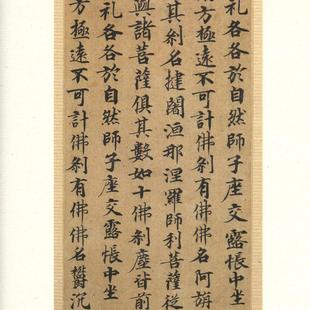 礼各各於自然師子座交露帳中坐
方極遠不可計佛刹有佛佛名阿旃
其刹名揵闍洹那涅羅師利菩薩從
與諸菩薩俱其數如十佛刹塵皆前
礼各各於自然師子座交露帳中坐
方極遠不可計佛刹有佛佛名欝沉